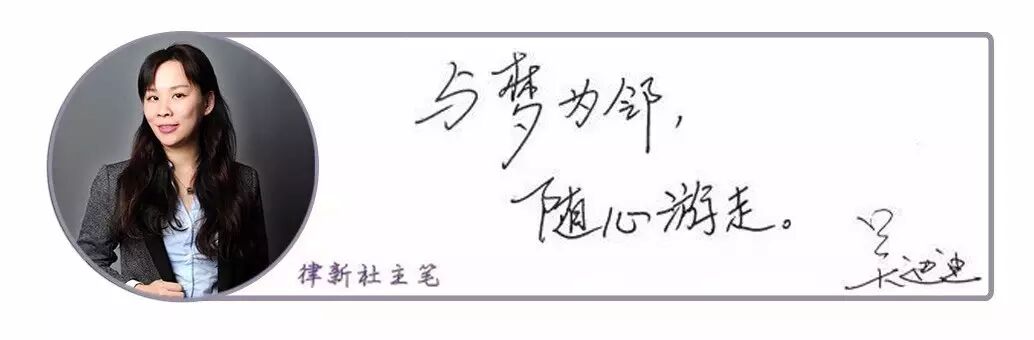 与梦为邻，
随心游走。
律新社主笔
吴迪迪